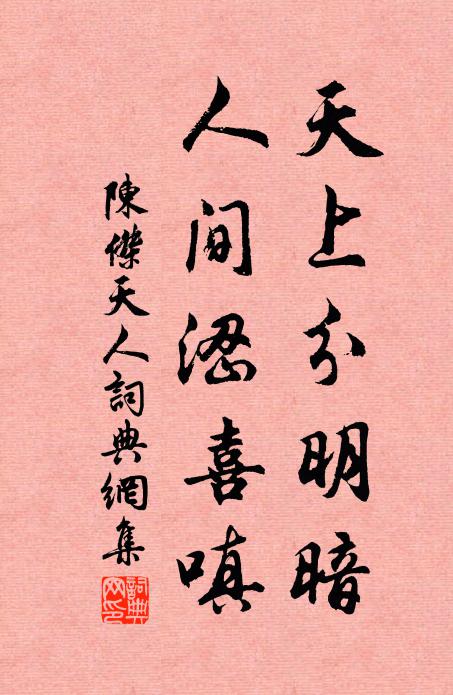 天上分明暗
人間喜嗔
陳傑天人詞典網集
詞典网印